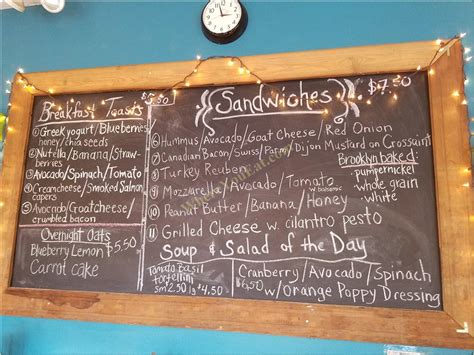 Breakfast Toasts $7.50
①Greek yogurt/Blueberries
honey/chia seeds
②Nutella/Banana/Straw-
berries
③Avocado/Spinach/Tomato
④Creamcheese/Smoked Salmon
capers
⑤Avocado/Goatcheese/
crumbled bacon
Overnight Oats
Blueberry Lemon $5.50
Carrot cake
Sandwiches $7.50
⑥Hummus/Avocado/Goat Cheese/Red Onion
⑦Canadian Bacon/Swiss/Parm/Dijon Mustard on Crossaint
⑧Turkey Reuben
⑨Mozzarella/Avocado/Tomato
w Balsamic
10 Peanut Butter/Banana/Honey
11 Grilled Cheese w. cilantro pesto
Brooklyn baked:
pumpernickle
whole grain
white
Soup & Salad of the Day
Tomato Basil
tortellini
sm 2.50 lg $4.50
Cranberry/Avocado/Spinach
$6.50 w/Orange Poppy Dressing